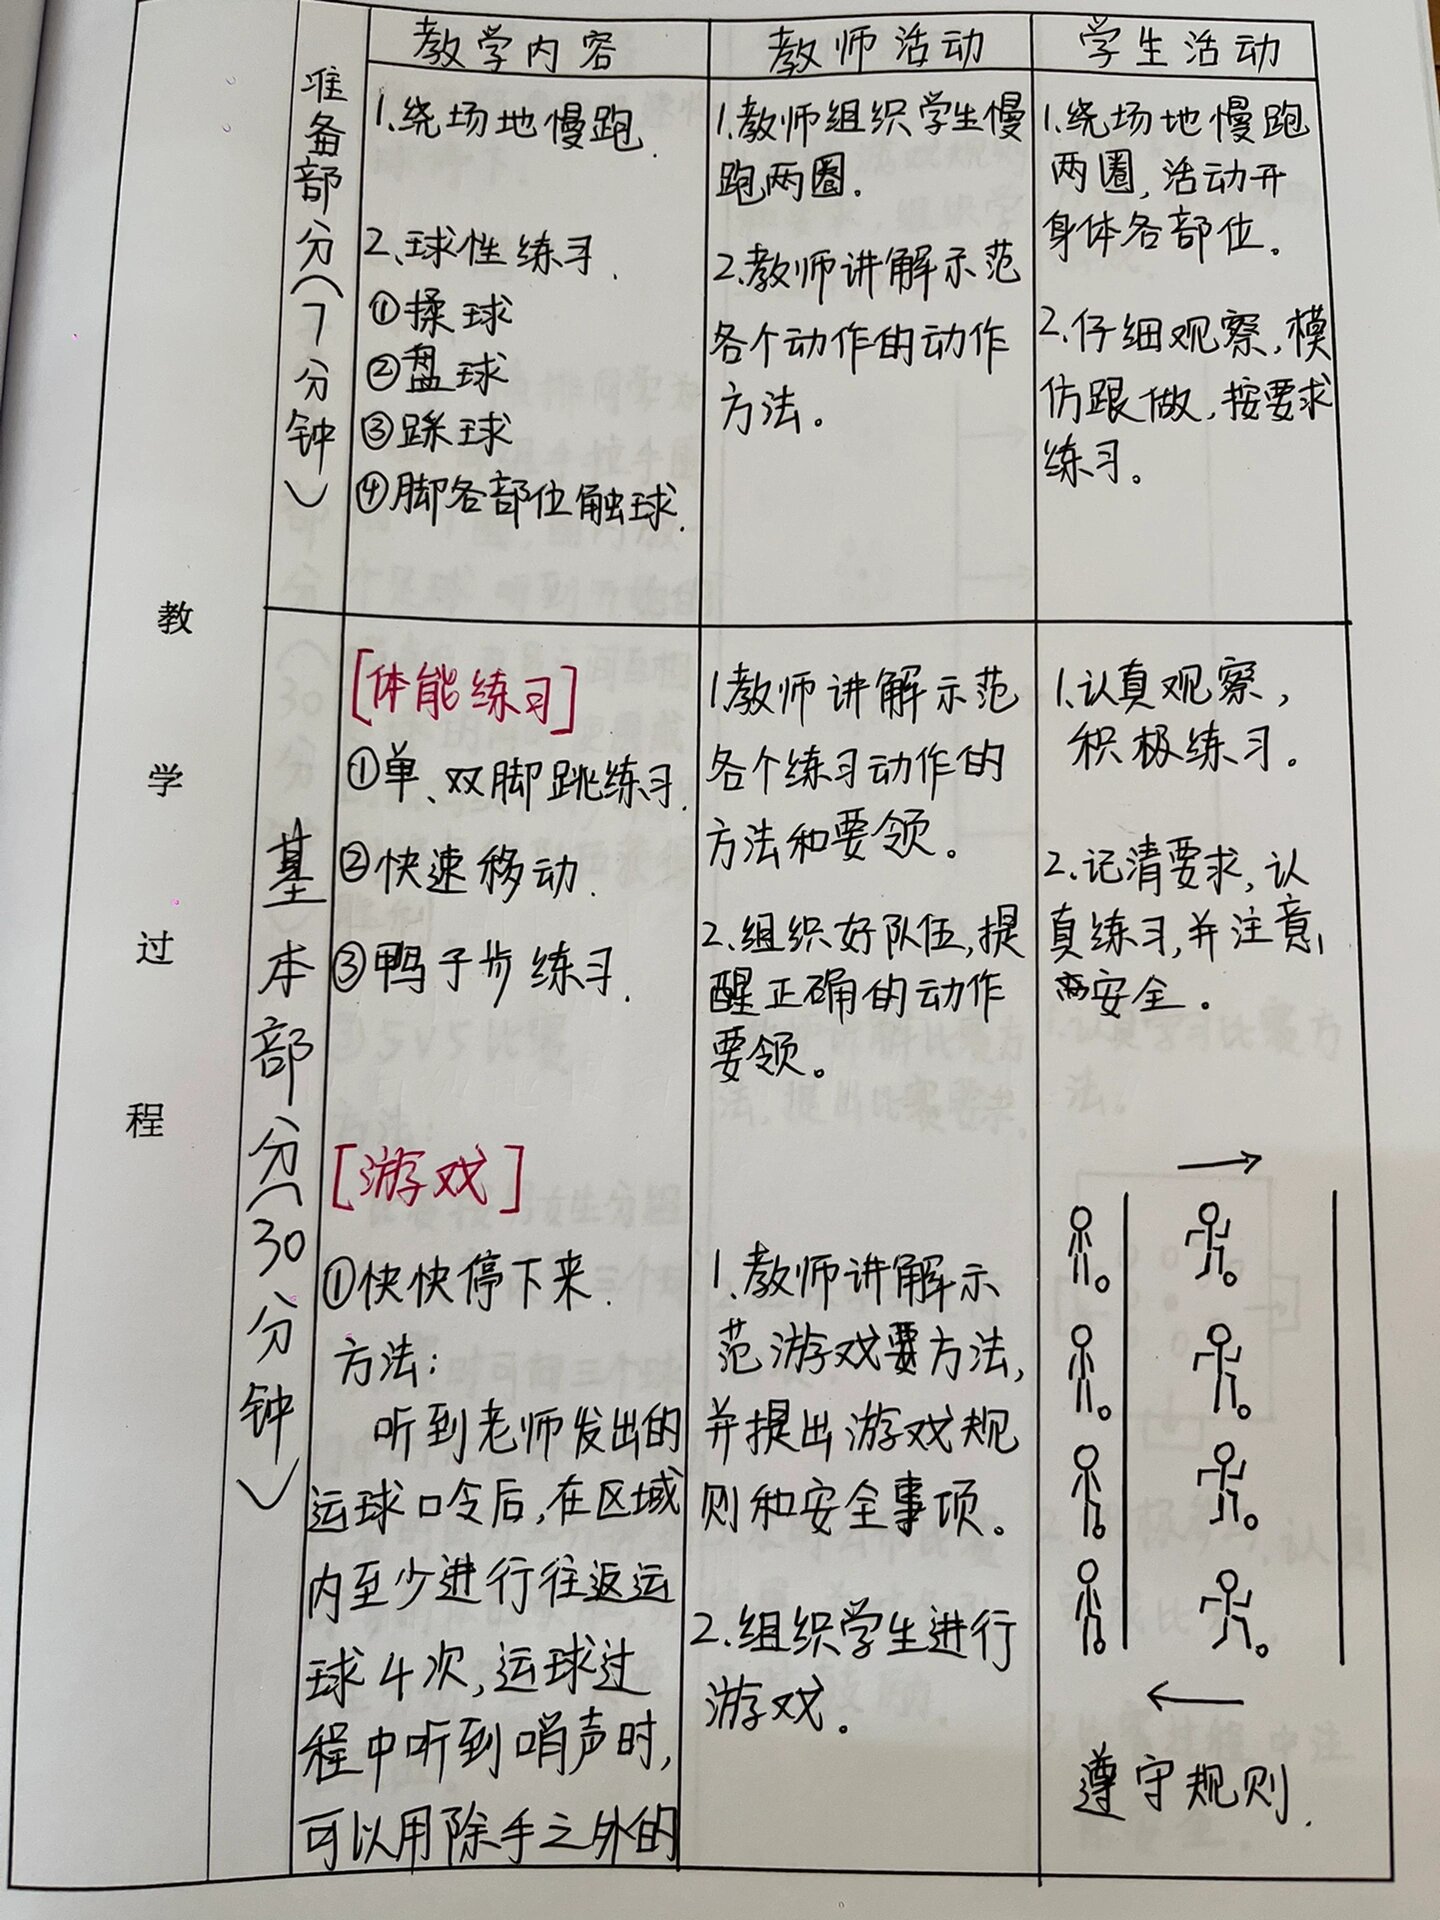 教学过程
教学内容
教师活动
学生活动
准备部分(7分钟)
1.绕场地慢跑.
2、球性练习.
①揉球
②盘球
③踩球
④脚各部位触球.
1.教师组织学生慢
跑两圈.
2.教师讲解示范
各个动作的动作
方法。
1.绕场地慢跑
两圈,活动开
身体各部位。
2.仔细观察,模
仿跟做,按要求
练习。
基本部分(30分钟)
[体能练习]
①单、双脚跳练习.
②快速移动.
③鸭子步练习.
1.教师讲解示范
各个练习动作的
方法和要领。
2.组织好队伍,提
醒正确的动作
要领。
1.认真观察,
积极练习。
2.记清要求,认
真练习,并注意
安全。
[游戏]
①快快停下来.
方法:
听到老师发出的
运球口令后,在区域
内至少进行往返运
球4次,运球过
程中听到哨声时,
可以用除手之外的
1.教师讲解示
范游戏方法,
并提出游戏规
则和安全事项。
2.组织学生进行
游戏。
遵守规则.